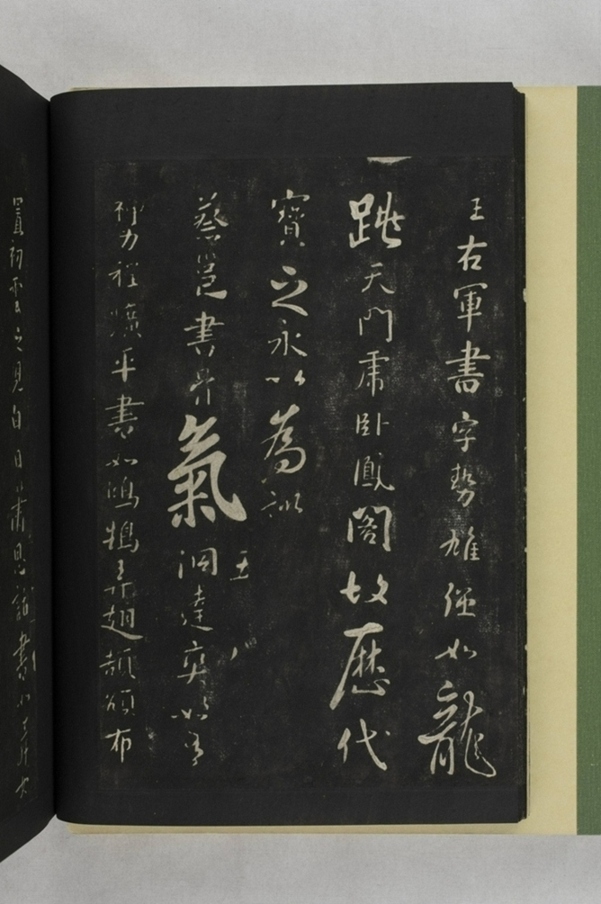 王右軍書字勢雄强如龍
跳天門虎卧鳳閣故歷代
寶之永以為訓
蔡邕書骨氣洞達爽如有
五
神力程曠平書如鴻鵠弄翅頡頏布
置初雲之見白日蕭思話書如